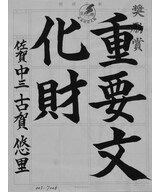 奨励賞
重要文
化財
佐賀 中三 古賀 悠里